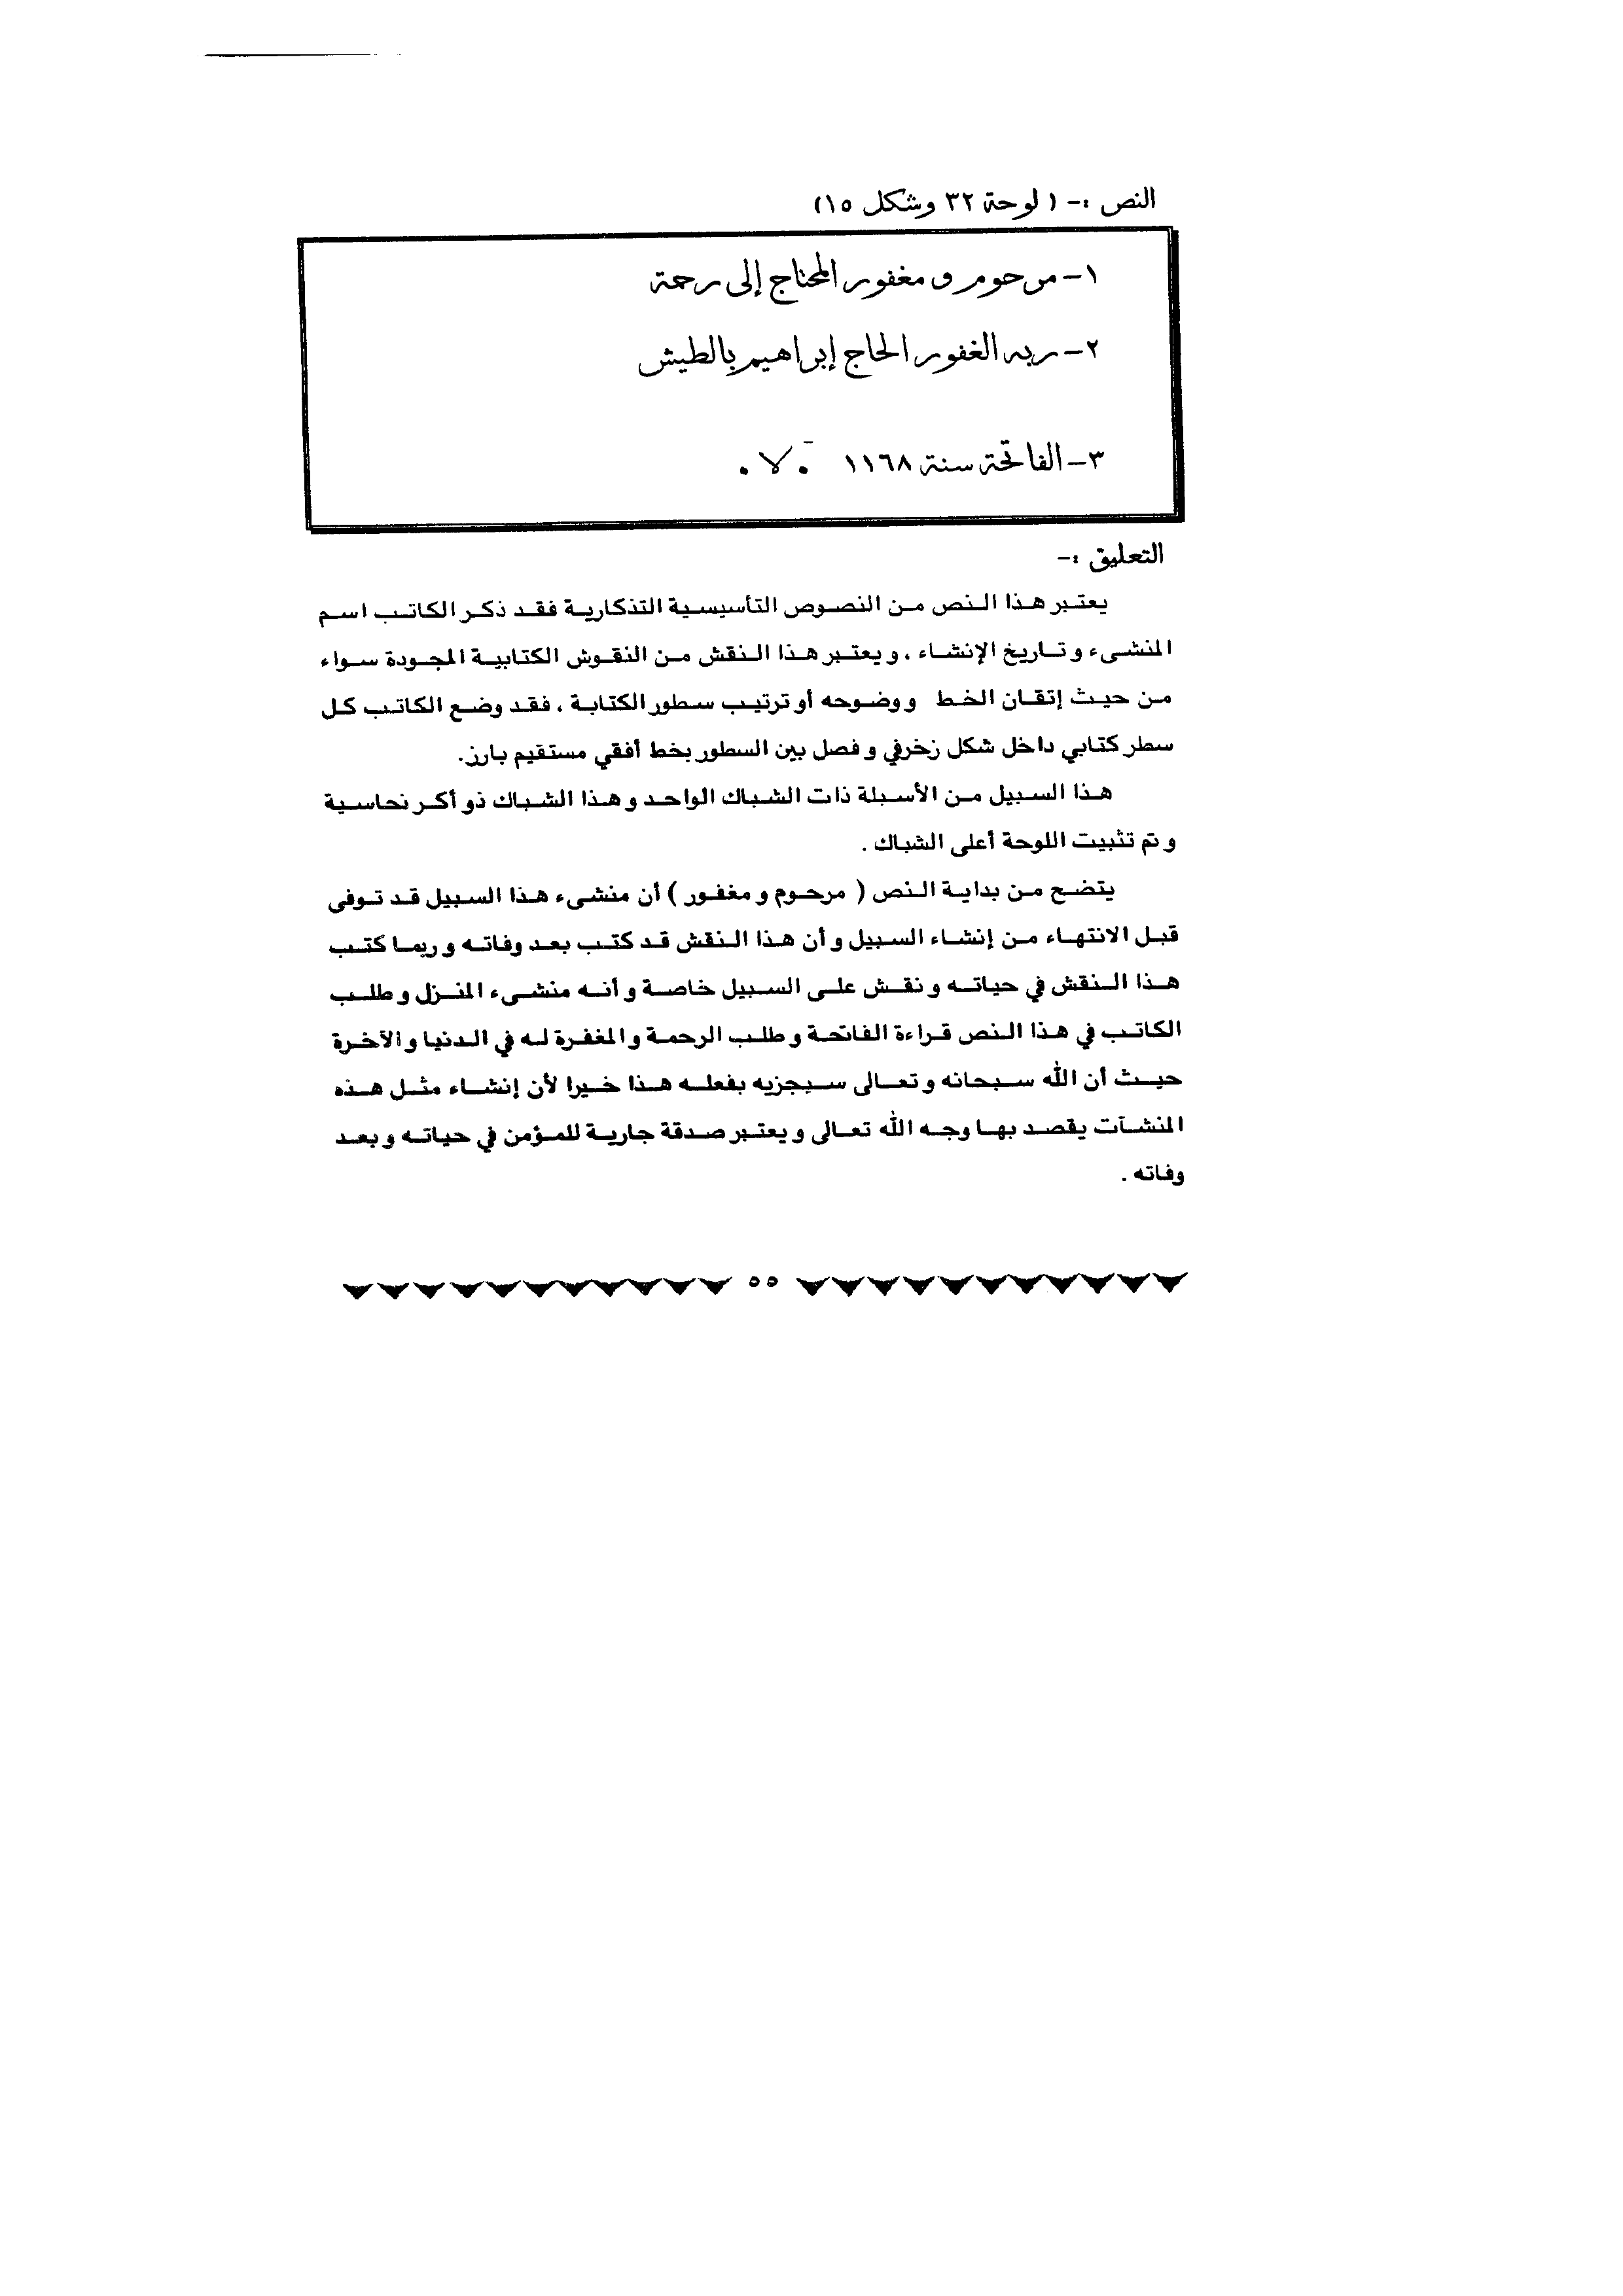 النص :- ( لوحة ٣٢ وشكل ١٥)
١- مرحوم و مغفور المحتاج إلى رحمة
٢- ربه الغفور الحاج إبراهيم بالطيش
٣- الفاتحة سنة ١١٦٨
التعليق :-
يعتبر هذا النص من النصوص التأسيسية التذكارية فقد ذكر الكاتب اسم
المنشىء وتاريخ الإنشاء ، ويعتبر هذا النقش من النقوش الكتابية المجودة سواء
من حيث إتقان الخط ووضوحه أو ترتيب سطور الكتابة ، فقد وضع الكاتب كل
سطر كتابي داخل شكل زخرفي وفصل بين السطور بخط أفقي مستقيم بارز.
هذا السبيل من الأسبلة ذات الشباك الواحد وهذا الشباك ذو أكر نحاسية
وتم تثبيت اللوحة أعلى الشباك .
يتضح من بداية النص ( مرحوم ومغفور ) أن منشىء هذا السبيل قد توفى
قبل الانتهاء من إنشاء السبيل وأن هذا النقش قد كتب بعد وفاته وربما كتب
هذا النقش في حياته ونقش على السبيل خاصة وأنه منشىء المنزل وطلب
الكاتب في هذا النص قراءة الفاتحة وطلب الرحمة والمغفرة له في الدنيا والآخرة
حيث أن الله سبحانه وتعالى سيجزيه بفعله هذا خيرا لأن إنشاء مثل هذه
المنشآت يقصد بها وجه الله تعالى ويعتبر صدقة جارية للمؤمن في حياته وبعد
وفاته .
٥٥